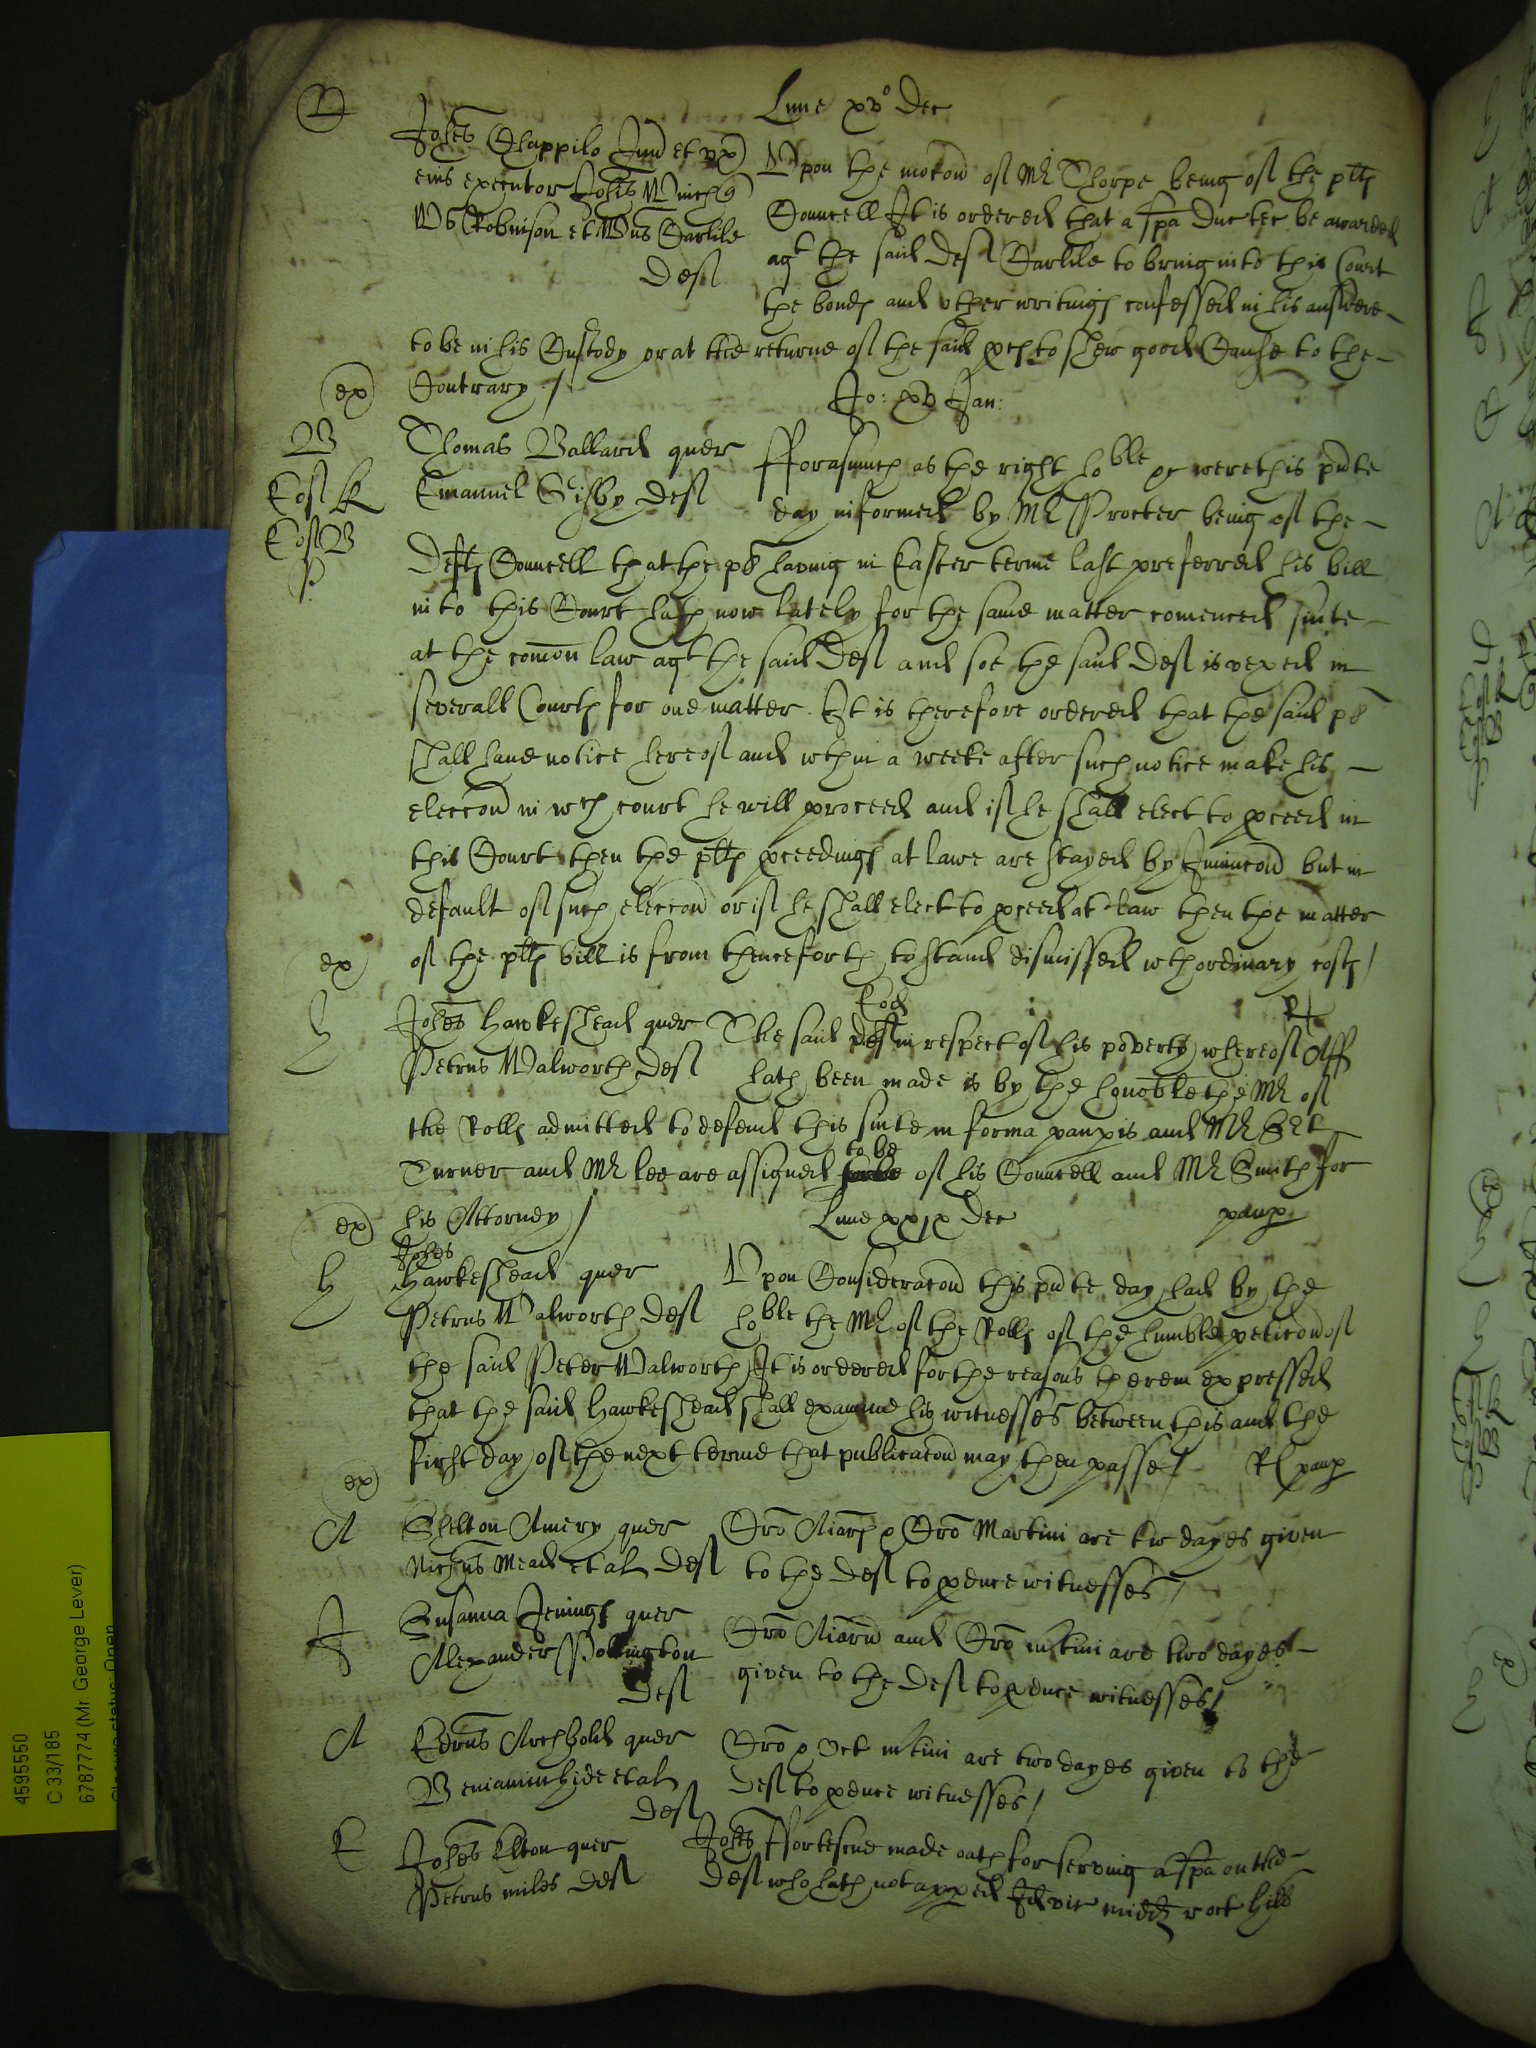 Lune xv° Dec
Johes Chappilo Jun et ux
eius executor Johis
Robinson et Carlile
Deft
Upon the mocon of Mr Thorpe being of the pltes
Councell It is ordered that a spa Duc tec be awarded
agt the said Deft Carlile to bring into this Court
the bondes and other writinges confessed in his answere
to be in his Custody or at the returne of the said pces to shew good Cause to the
Contrary /
ex
Jo: xv Jan:
B
Cos K
Cos B
P
Thomas Ballard quer
Emanuel Deft
fforasmuch as the right hoble &c were this pnte
day informed by Mr Procter being of the
Deftes Councell that the pl having in Easter terme last preferred his bill
into this Court hath now lately for the same matter comenced suite
at the comon law agt the said Deft and soe the said Deft is vexed in
severall Courtes for one matter. It is therefore ordered that the said pl
shall haue notice hereof and wthin a weeke after such notice make his
eleccon in wch court he will proceed and if he shall elect to pceed in
this Court then the pltes pceedinges at lawe are stayed by Iniuncon but in
default of such eleccon or if he shall elect to pceed at Law then the matter
of the pltes bill is from thenceforth to stand dismissed wth ordinary costes /
ex
H
Johes Hawkeshead quer
Petrus Walworth Deft
The said Deft in respect of his poverty whereof Aff
hath been made is by the honoble the Mr of
the Rolls admitted to defend this suite in forma paupis and Mr
Turner and Mr lee are assigned to be of his Councell and Mr Smith for
his Attorney /
ex
Lune xxix Dec
paup
H
Johes
Hawkeshead quer
Petrus Walworth Deft
Upon Consideracon this pnte day had by the
hoble the Mr of the Rolls of the humble peticon of
the said Peter Walworth It is ordered for the reasons therein expressed
that the said Hawkeshead shall examine his witnesses between this and the
first day of the next terme that publicacon may then passe /
paup
ex
A
Shelton Amery quer
Nichus Mead et al Deft
Cro Aiar p Cro Martini are two dayes given
to the Deft to pduce witnesses /
J
Susanna Jeninges quer
Alexander Pollington
Deft
Cro Aiarum and Cro mtini are two dayes
given to the Deft to pduce witnesses /
A
Edrus Archbold quer
Beniamin hide et al
Deft
Cro p Oct mtini are two dayes given to the
Deft to pduce witnesses /
E
Johes Elton quer
Petrus miles Deft
Johes ffortescue made oath for serving a spa on the
Deft who hath not apped Id vic midd r oct hill
4595550
C 33/185
6787774 (Mr. George Lever)